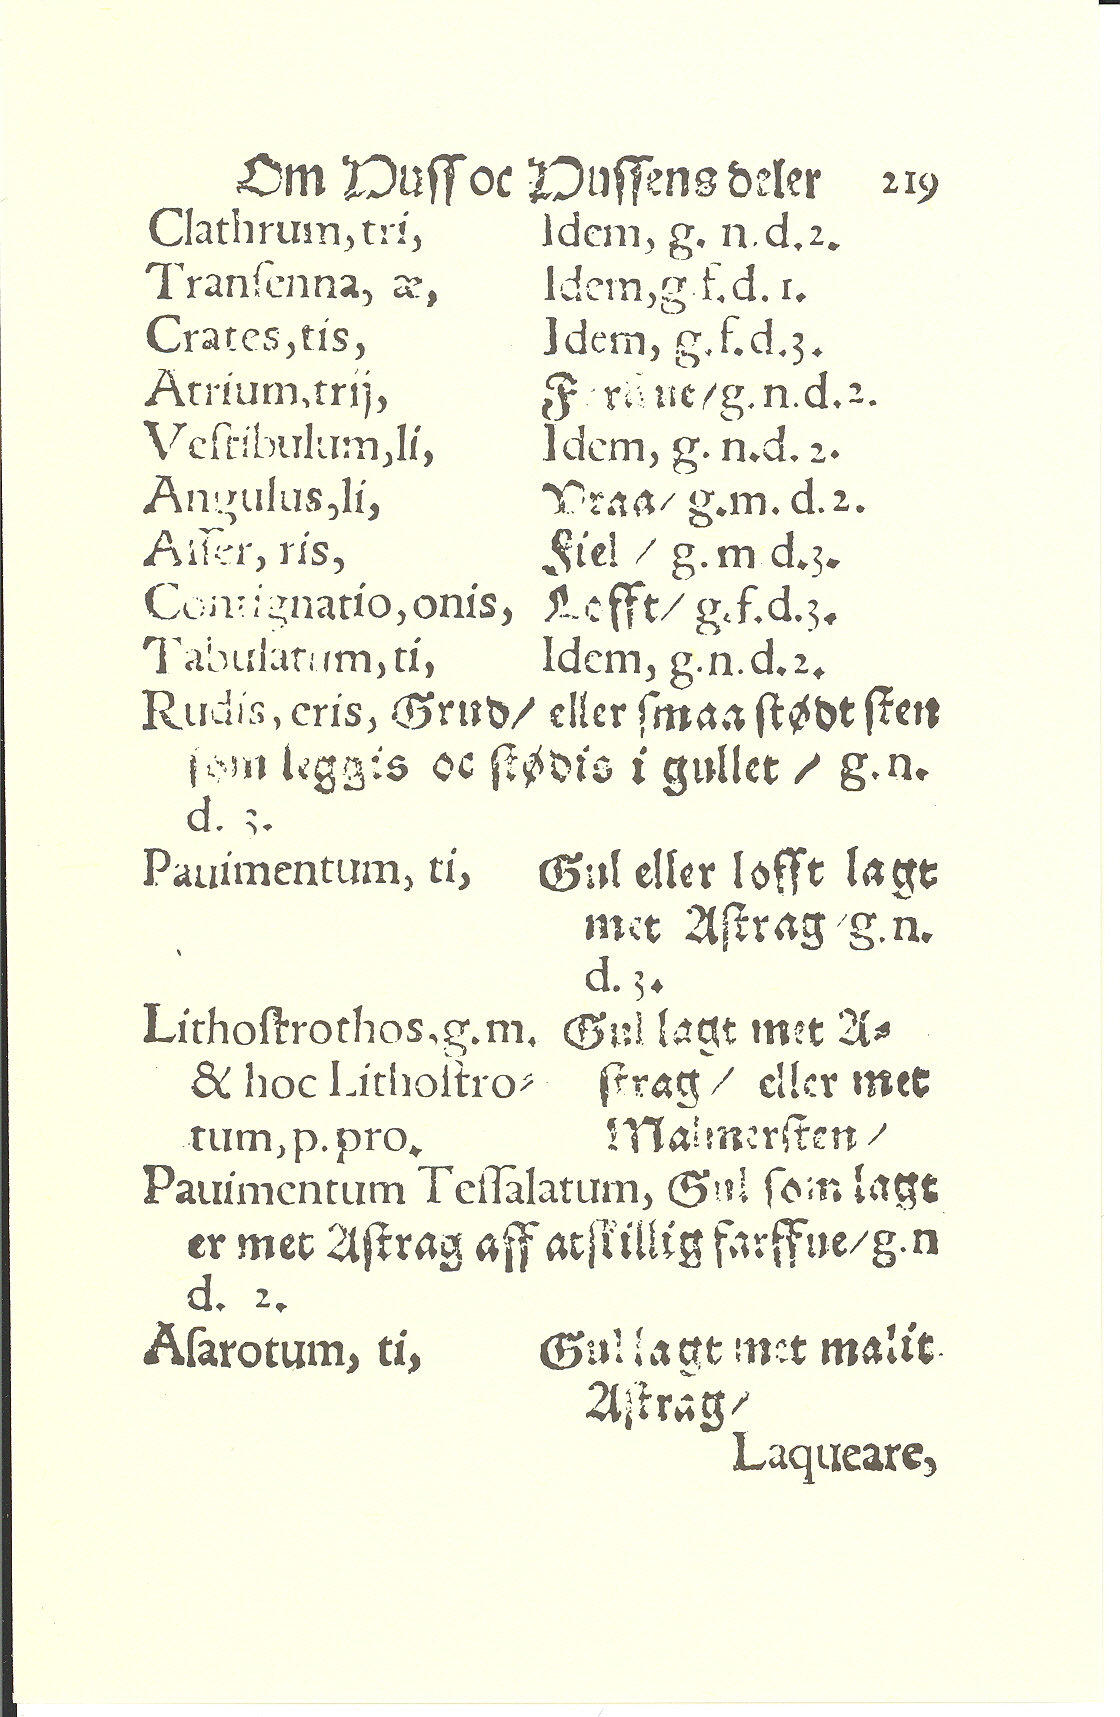 Om Huſſ oc Huſſens deler 219
Clathrum, tri, Idem, g. n. d. 2.
Tranſenna, æ, Idem, g f. d. 1.
Crates, tis, Idem, g. f. d. 3.
Atrium, trij, g. n. d. 2.
Veſtibulum, li, Idem, g. n. d. 2.
Angulus, li, Vraa/ g. m. d. 2.
Aſſer, ris, Fiel / g. m d. 3.
Contignatio, onis, Lofft/ g. f. d. 3.
Tabulatum, ti, Idem, g. n. d. 2.
Rudis, eris, Grud/ eller ſmaa ſtødt ſten
ſom leggis oc ſtødis i gullet / g. n.
d. 3.
Pauimentum, ti, Gul eller lofft lagt
met Aſtrag / g. n.
d. 3.
Lithoſtrothos, g. m. Gul lagt met A⸗
& hoc Lithoſtro⸗ ſtrag / eller met
tum, p. pro. Malmerſten /
Pauimentum Teſſalatum, Gul ſom lagt
er met Aſtrag aff atſkillig farffue/ g. n
d. 2.
Aſarotum, ti, Gul lagt met malit
Aſtrag/
Laqueare,